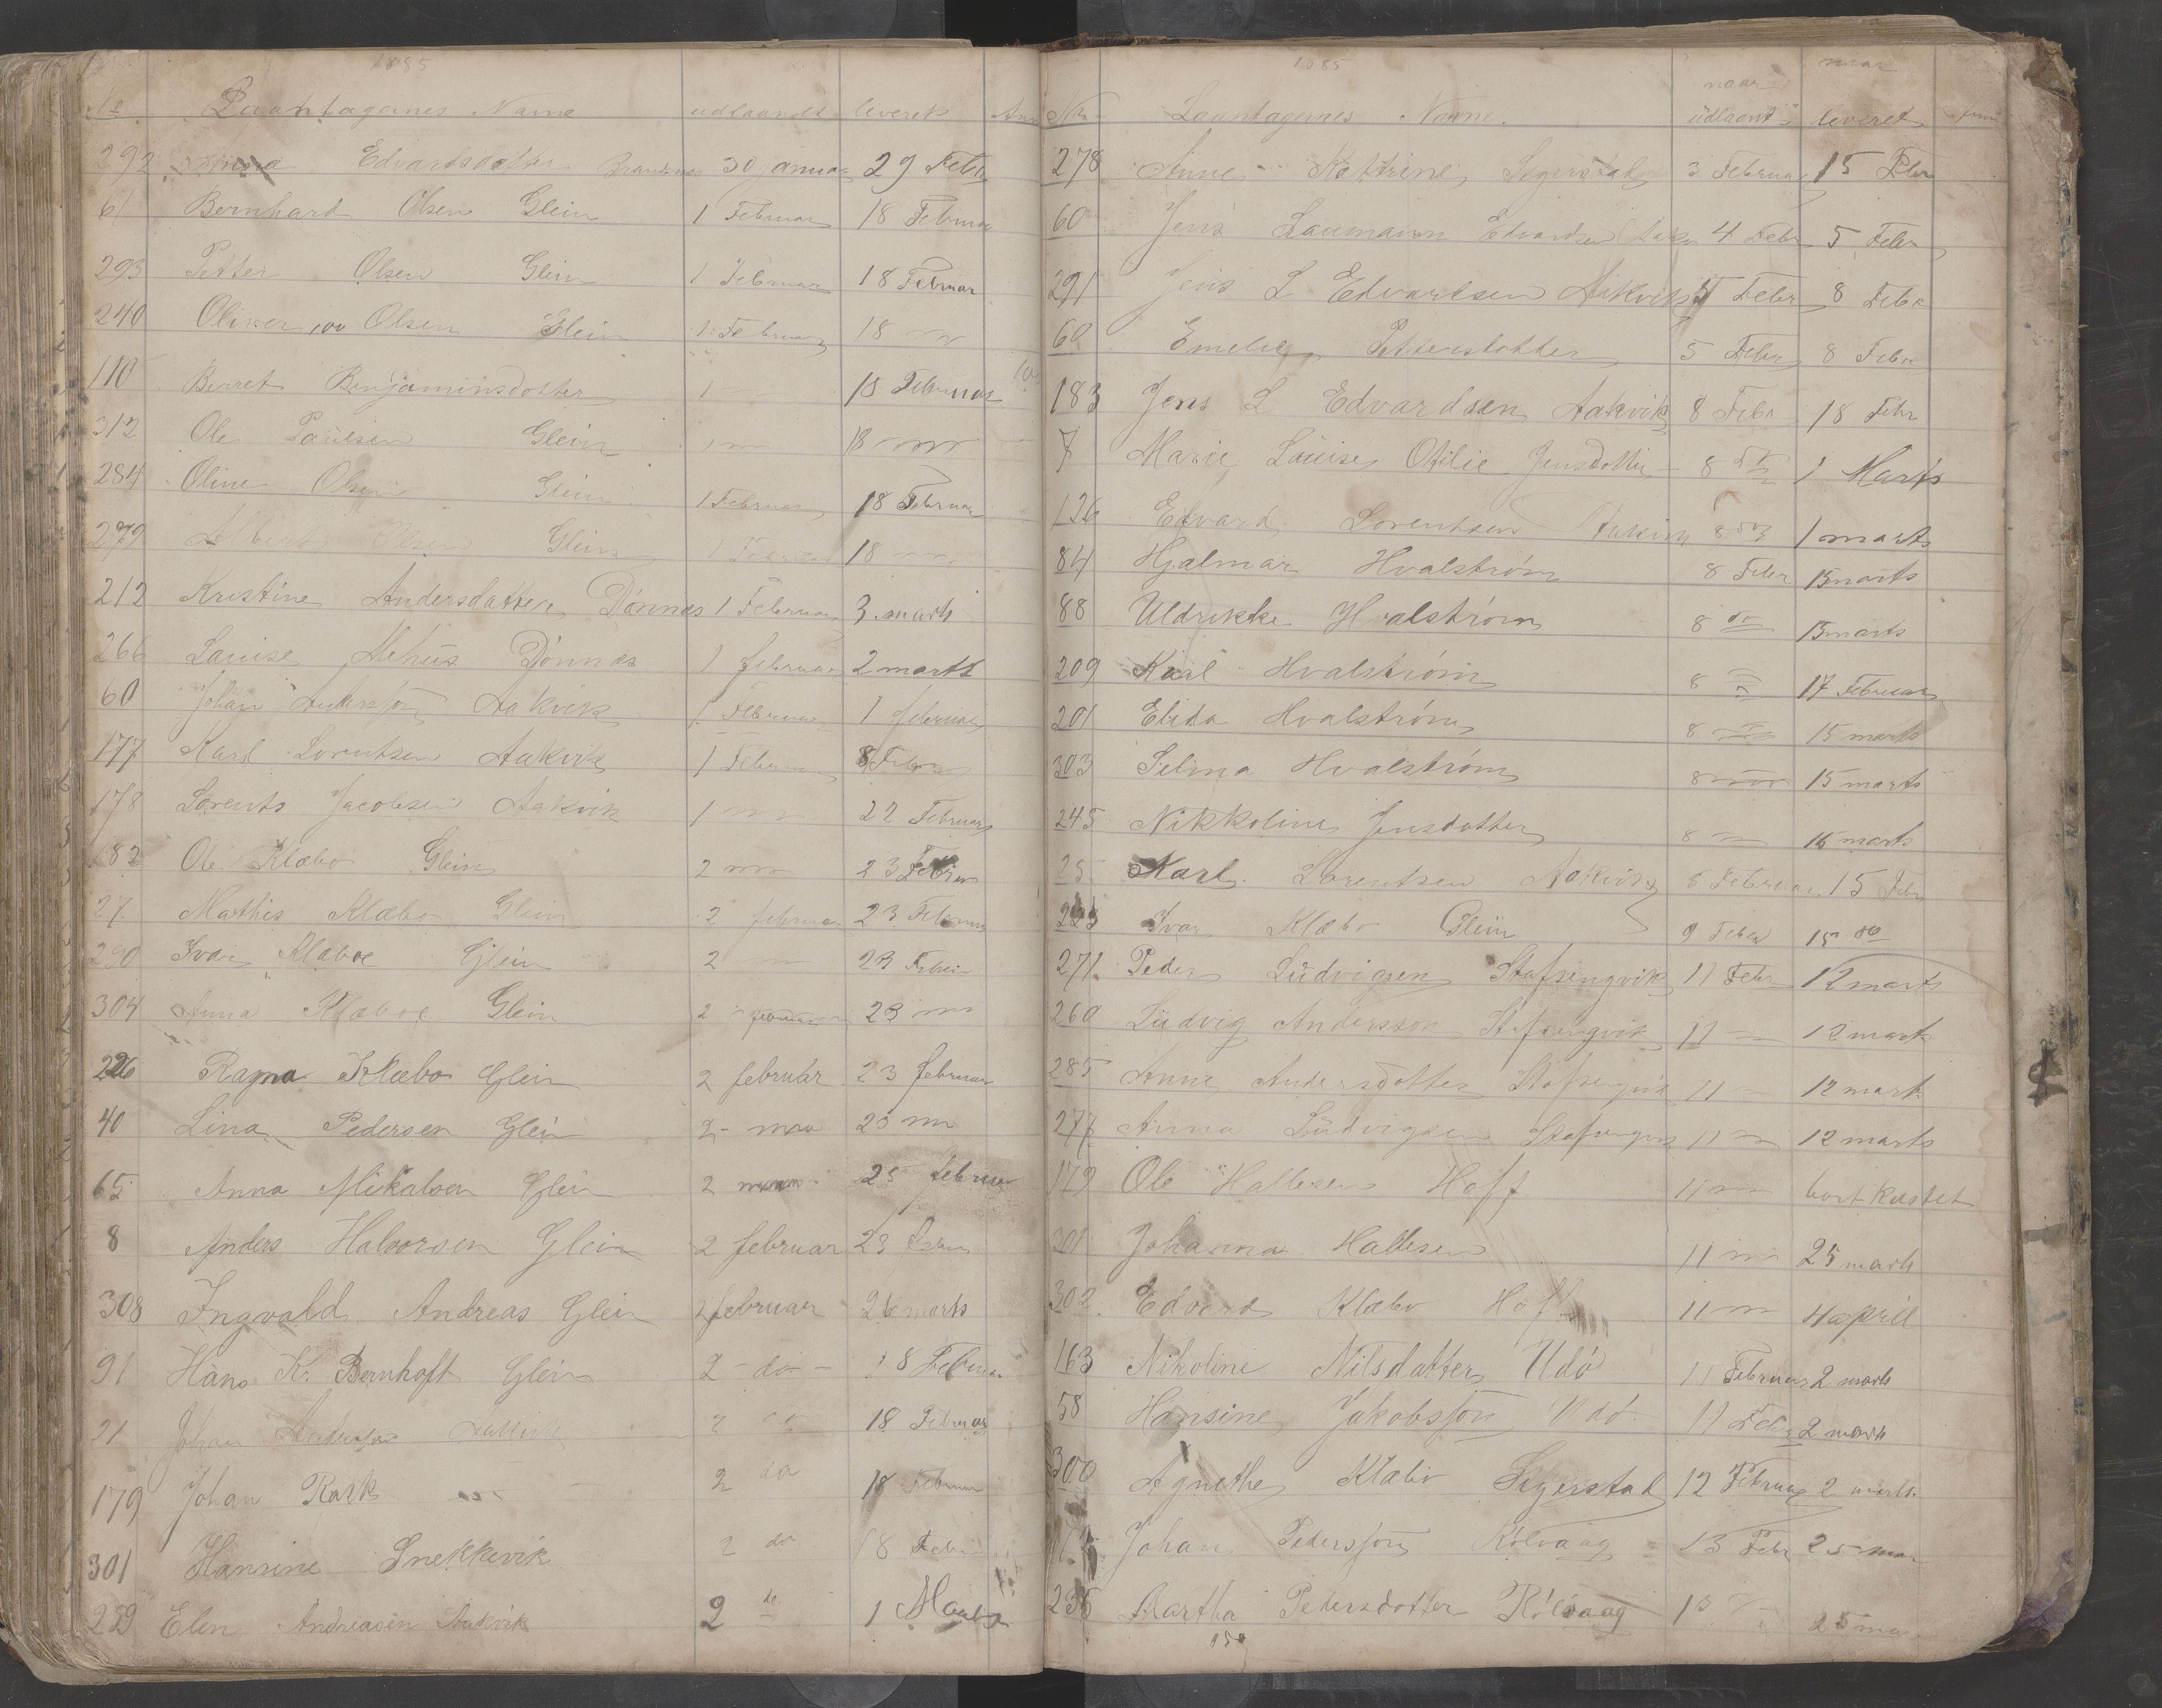 1885
No Laantagernes Navne udlaandt leveret Anm
292 Edvardsdotter 30 januar 29 Febr
61 Bernhard Olsen Glein 1 Februar 18 Februar
293 Petter Olsen Glein 1 Februar 18 Februar
240 Oliver Olsen Glein 1 Februar 18 "
110 Berret Benjaminsdotter 1 " 18 Februar
312 Ole Paulsen Glein 1 " 18 "
284 Oline Olsen Glein 1 Februar 18 Februar
279 Albert Olsen Glein 1 Februar 18 "
212 Kristine Andersdatter Dönnas 1 Februar 3 marts
266 Lauise Mehus Dönnas 1 februar 2 marts
60 Johan Andersson Aakvik 1 Februar 1 februar
177 Karl Lorentsen Aakvik 1 Februar 8 Febr
178 Lorents Jacobsen Aakvik 1 " 22 Februar
182 Ole Klæbo Glein 2 " 23 Februar
27 Mathis Klæbo Glein 2 februar 23 Februar
290 Ivar Klæboe Glein 2 " 23 Febru
304 Anna Klæboe Glein 2 februar 23 "
226 Ragna Klæbo Glein 2 februar 23 februar
40 Lina Pedersen Glein 2 " 23 "
65 Anna Mikalsen Glein 2 " 25 februar
8 Anders Halvorsen Glein 2 februar 23 Febru
308 Ingvald Andreas Glein 2 februar 26 marts
91 Hans K. Bernhoft Glein 2 do 18 Februar
21 Johan 2 do 18 Februar
179 Johan Rask 2 do 18 Februar
301 Hansine Snekkevik 2 do 18 Febr
259 Elen Andreasen Aakvik 2 do 1 Marts
1885
No Laantagernes Navne. naar udlaant naar leveret
278 Anne Kattrine Segerstad 3 Februar 15 Febr
60 Jens Laumann Edvardsen 4 Febr 5 Febr
291 Jens L Edvartsen Aakvik 5 Febr 8 Febr
60 Emelie Pettersdotter 5 Febr 8 Febr
183 Jens L Edvardsen Aakvik 8 Febr 18 Febr
7 Marie Lauise Otilie Jensdotter 8 do 1 Marts
126 Edvard Lorentsen Aakvik 8 do 1 marts
84 Hjalmar Hvalström 8 Febr 15 marts
88 Uldrikke Hvalström 8 do 15 marts
209 Karl Hvalström 8 " 17 Februar
201 Elida Hvalström 8 " 15 marts
303 Selina Hvalström 8 " 15 marts
245 Nikkoline Jensdotter 8 " 16 marts
25 Karl Lorentsen Aakvik 8 Februar 15 Febr
225 Ivar Klæbo Glein 9 Febr 15 do
271 Peder Ludvigsen Stafsengvik 11 Febr 12 marts
260 Ludvig Andersson Stafsengvik 11 " 12 marts
285 Anne Andersdotter Stafsengvik 11 " 12 marts
277 Anna Ludvigsen Stafsengvik 11 " 12 marts
179 Ole Hallesen Hoff 11 " bortkastet
301 Johanna Hallesen 11 " 25 marts
302 Edvard Klæbo Hoff 11 " 4 april
163 Nikoline Nilsdatter Udö 11 Februar 2 marts
58 Hansine Jakobsson Udö 11 Febr 2 marts
300 Agnethe Klæbo Segerstad 12 Februar 2 marts
Johan Pedersson Kölvaag 13 Febr 25 mar
236 Martha Pedersdotter Rölvaag 13 " 25 mar